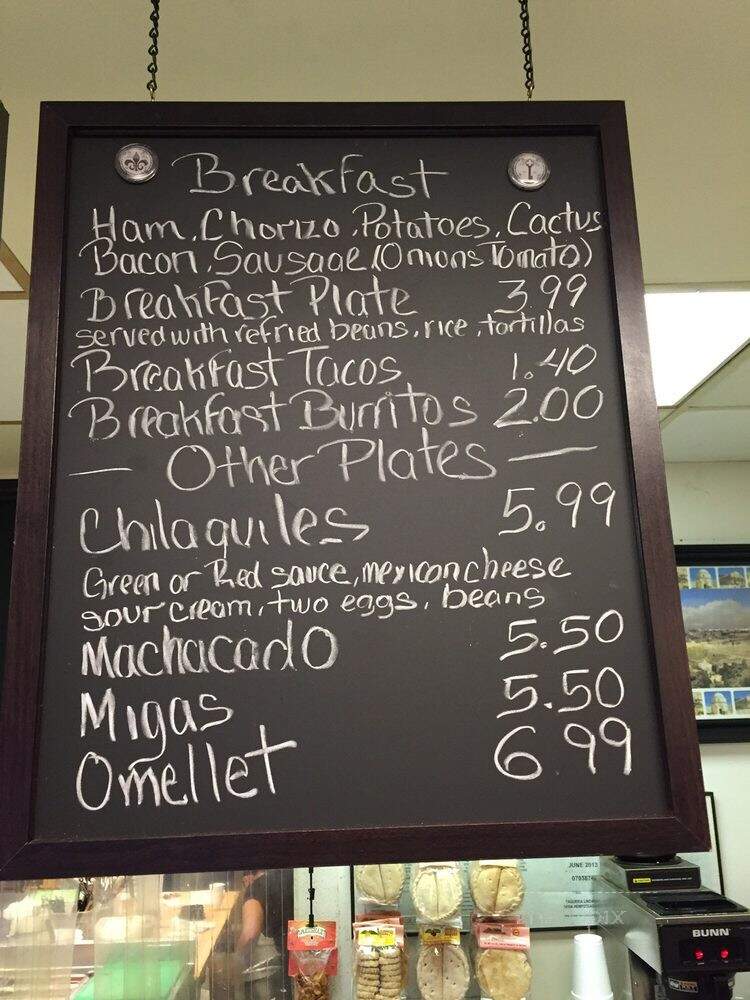 Breakfast
Ham, Chorizo, Potatoes, Cactus
Bacon, Sausage (Onions Tomato)
Breakfast Plate 3.99
served with refried beans, rice, tortillas
Breakfast Tacos 1.40
Breakfast Burritos 2.00
— Other Plates —
Chilaquiles 5.99
Green or Red sauce, mexican cheese
sour cream, two eggs, beans
Machacado 5.50
Migas 5.50
Omellet 6.99
JUNE 2013
BUNN